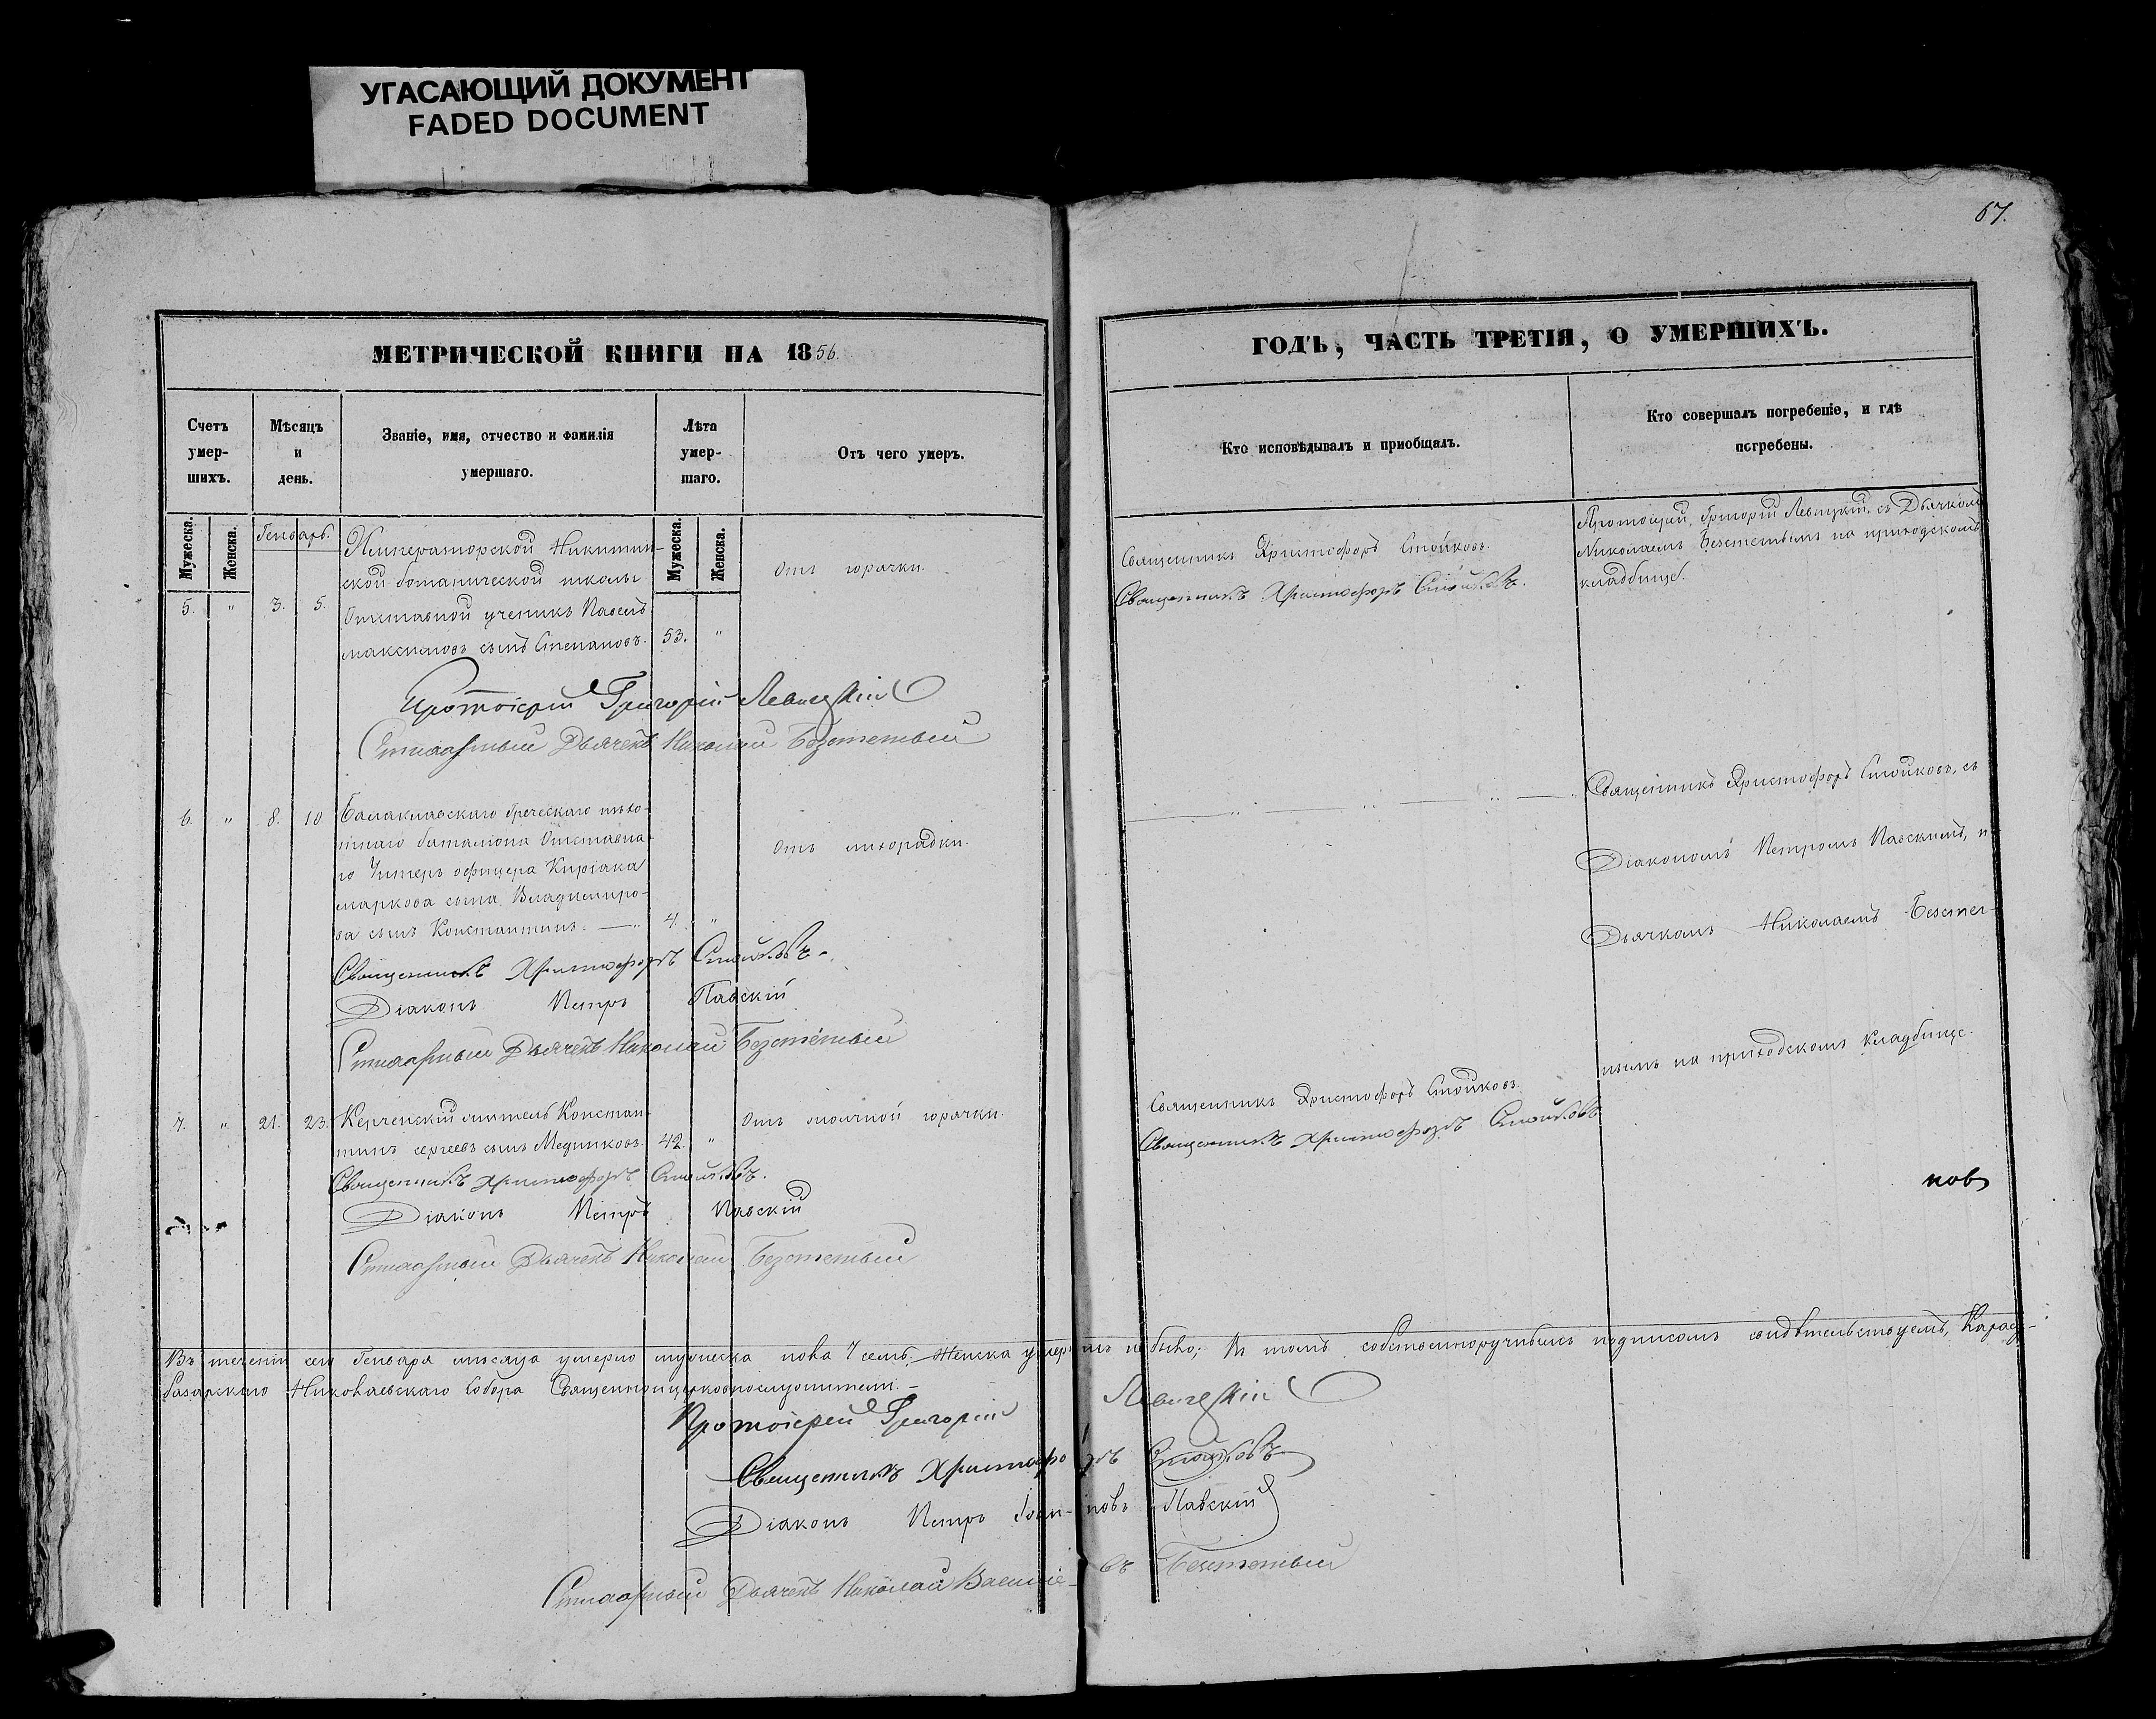 УГАСАЮЩИЙ ДОКУМЕНТ
FADED DOCUMENT
67.
МЕТРИЧЕСКОЙ КНИГИ НА 1856.
Счетъ умер-шихъ.
Мѣсяцъ и день.
Званіе, имя, отчество и фамилія умершаго.
Лѣта умер-шаго.
Отъ чего умеръ.
Мужеска.
Женска.
Генварь.
Мужеска.
Женска.
Императорской Никитин-
ской ботанической школы
5. " 3. 5. Отставной ученикъ Павелъ
Максимовъ сынъ Степановъ. 53. "
Отъ горячки.
Протоіерей Григорій Левицкій
Стихарный Дьячекъ Николай Безсметный
6. " 8. 10 Балаклавскаго Греческаго пѣхо-
тнаго баталіона Отставна-
го Унтеръ офицера Киріака
Маркова сына Владимиро-
ва сынъ Константинъ. 4. "
Отъ лихорадки.
Священникъ Христофоръ Стойковъ.
Діаконъ Петръ Павскій
Стихарный Дьячекъ Николай Безсметный
7. " 21. 23. Керченскій житель Констан-
тинъ Сергеевъ сынъ Медниковъ. 42. "
Отъ желчной горячки.
Священникъ Христофоръ Стойковъ.
Діаконъ Петръ Павскій
Стихарный Дьячекъ Николай Безсметный
ГОДЪ, ЧАСТЬ ТРЕТІЯ, О УМЕРШИХЪ.
Кто исповѣдывалъ и приобщалъ.
Кто совершалъ погребеніе, и гдѣ
погребены.
Священникъ Христофоръ Стойковъ.
Священникъ Христофоръ Стойковъ.
Протоіерей Григорій Левицкій, съ Дьячкомъ
Николаемъ Безсметнымъ на приходскомъ
кладбище.
Священникъ Христофоръ Стойковъ, съ
Діакономъ Петромъ Павскимъ, и
Дьячкомъ Николаемъ Безсмет-
нымъ на приходскомъ кладбище.
Священникъ Христофоръ Стойковъ.
Священникъ Христофоръ Стойковъ.
новъ
Въ теченіи сего Генваря мѣсяца умерло мужеска пола 7 семь. Женска умершихъ не было; Въ томъ собственноручнымъ подписомъ свидѣтельствуемъ, Карасу-
базарскаго Николаевскаго Собора Священноцерковнослужители.
Протоіерей Григорій Левицкій
Священникъ Христофоръ Стойковъ
Діаконъ Петръ Іоан-новъ Павскій
Стихарный Дьячекъ Николай Василіе-въ Безсметный